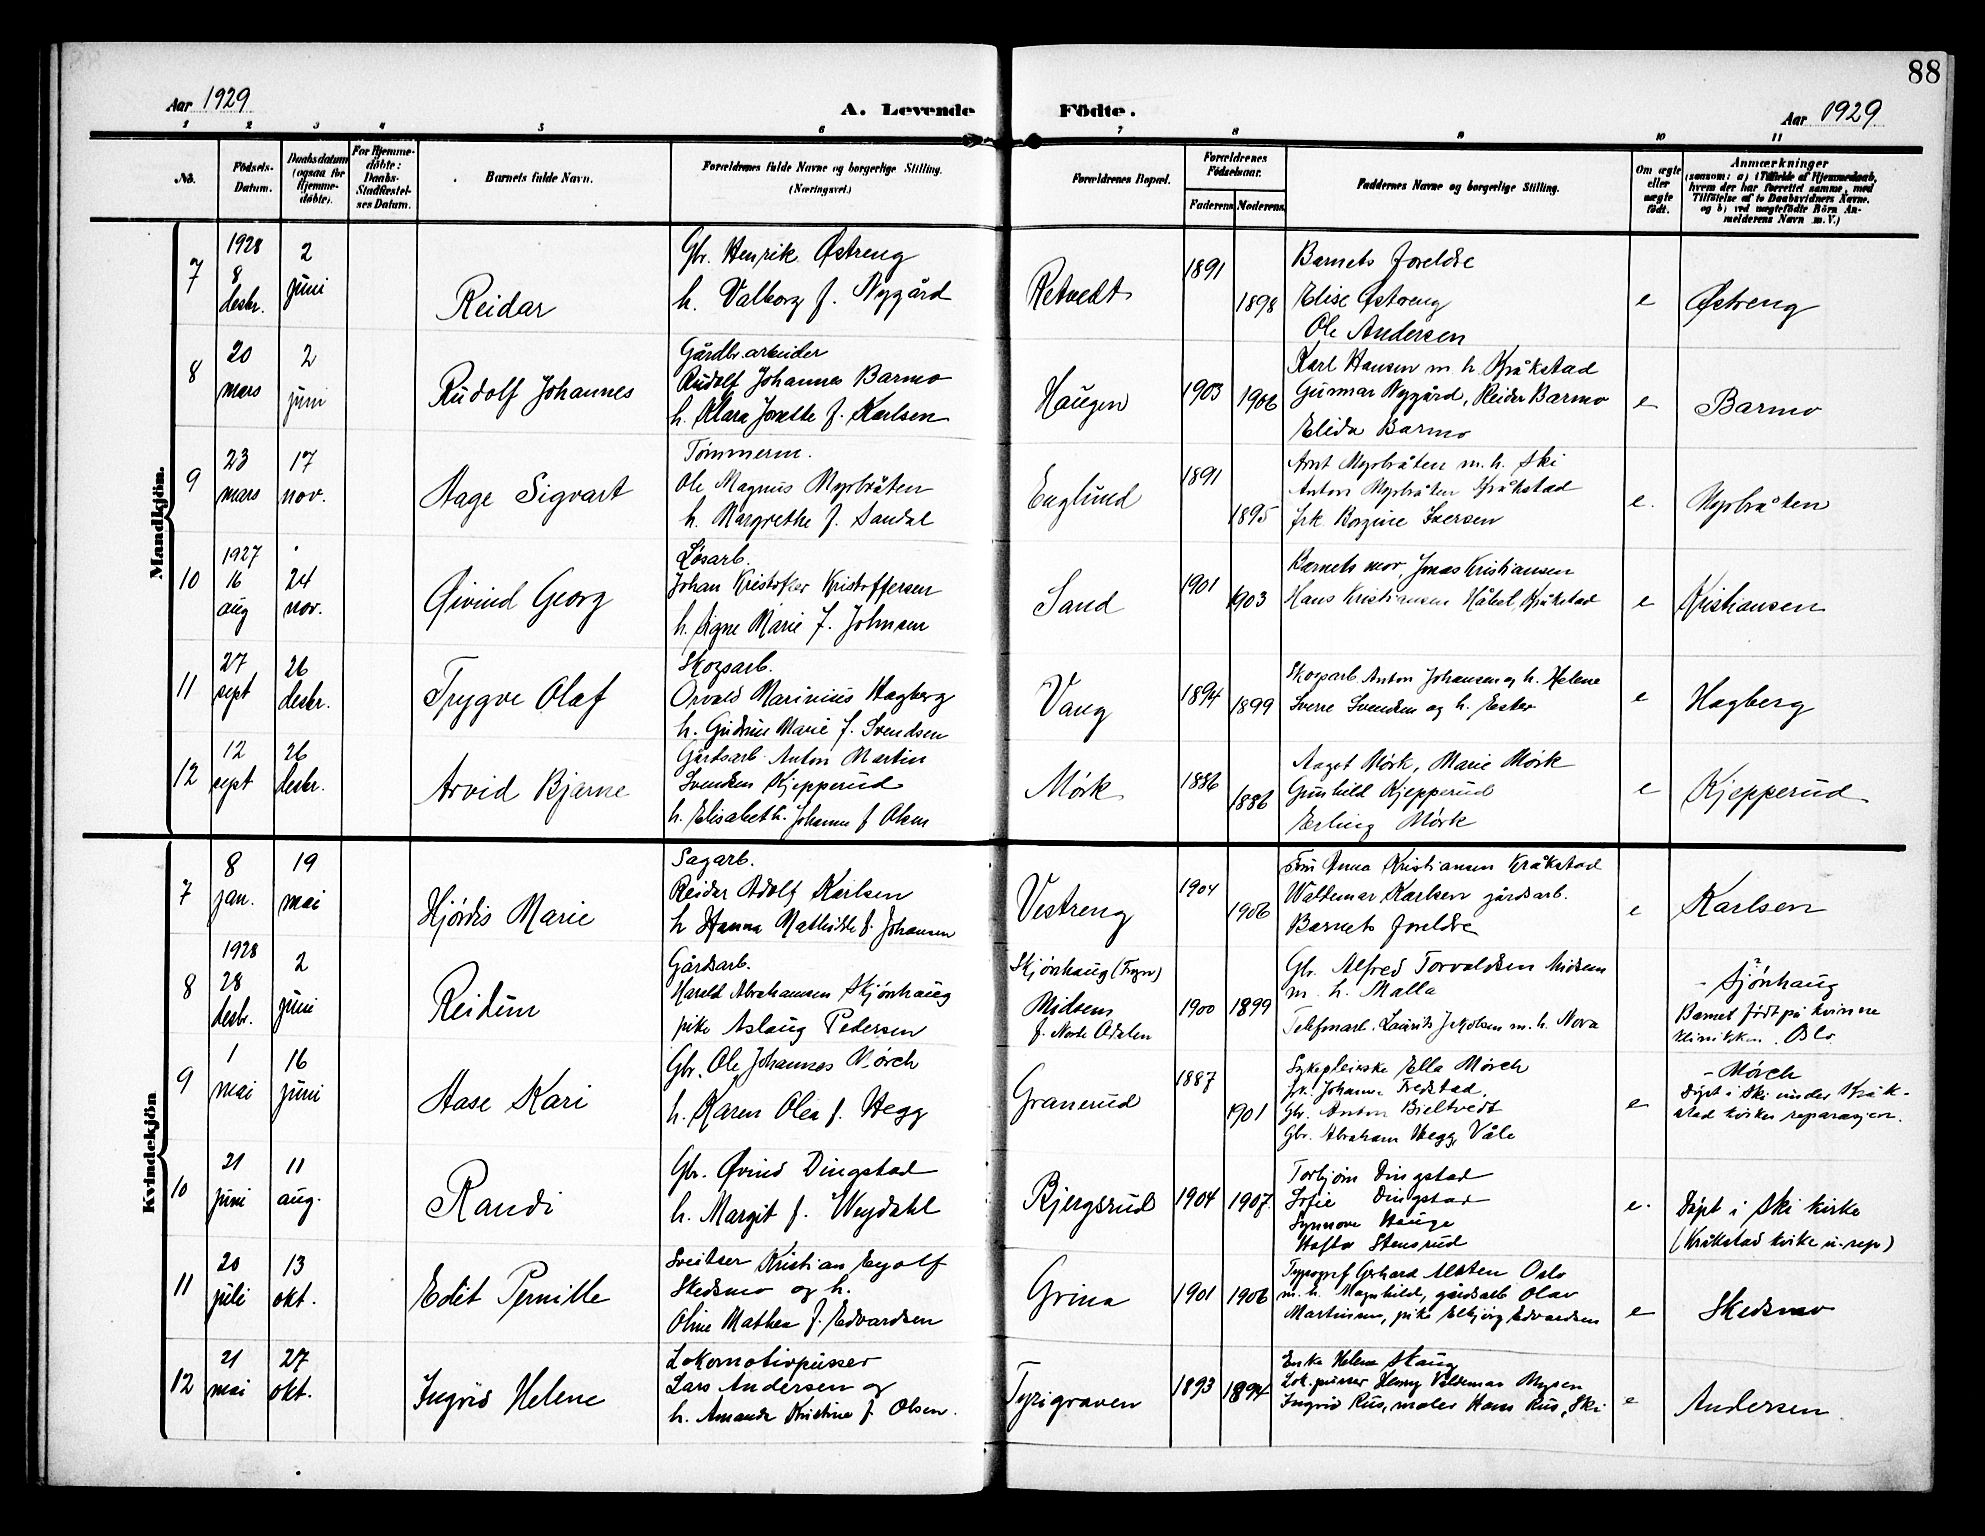 88
Aar 1929
A. Levende Födte.
Aar 1929
1 2 3 4 5 6 7 8 9 10 11
No.
Födsels-Datum.
Daabsdatum (ogsaa for Hjemme-döbte).
For Hjemme-döbte: Daabs-Stadfæstel-ses Datum.
Barnets fulde Navn.
Forældrenes fulde Navne og borgerlige Stilling.
(Næringsvei.)
Forældrenes Bopæl.
Forældrenes Födselsaar.
Faderens Moderens
Faddernes Navne og borgerlige Stilling.
Om ægte eller uægte födt.
Anmærkninger
(saasom: a) i Tilfælde af Hjemmedaab, hvem der har forrettet samme, med Tilföielse af to Daabsvidners Navne. og b) ved uægtefödte Börn An-melderens Navn m. V.)
Mandkjön.
7
1928
8 desbr.
2 juni
Reidar
Gbr. Henrik Østreng
h. Valborg f. Nygård
Retvedt
1891
1898
Barnets foreldre
Elise Østreng
Ole Andersen
e
Østreng
8
20 mars
2 juni
Rudolf Johannes
Gårdbr.arbeider
Rudolf Johannes Barmo
h. Klara Josette f. Karlsen
Haugen
1903
1906
Karl Hansen m. h. Kråkstad
Gunnar Nygård, Reidar Barmo
Elida Barmo
e
Barmo
9
23 mars
17 nov.
Aage Sigvart
Tømmerm.
Ole Magnus Myrbråten
h. Margrethe f. Sandal
Englund
1891
1895
Arnt Myrbråten m. h. Ski
Anton Myrbråten Kråkstad
frk. Borgine Iversen
e.
Myrbråten
10
1927
16 aug
24 nov.
Øivind Georg
Løsarb.
Johan Kristofer Kristoffersen
h. Signe Marie f. Johnsen
Sand
1901
1903
Barnets mor, Jonas Kristiansen
Hans Kristiansen Håbet, Kråkstad
e
Kristiansen
11
27 sept
26 desbr.
Trygve Olaf
Skogsarb.
Osvald Marinius Hagberg
h. Gudrun Marie f. Svendsen
Vang
1894
1899
Skogsarb Anton Johansen og h. Helene
Sverre Svendsen og h. Ester
e
Hagberg
12
12 sept
26 desbr.
Arvid Bjarne
Gårdsarb. Anton Martin
Svendsen Kjepperud
h. Elisabeth Johanne f Olsen
Mørk
1886
1886
Aagot Mørk, Marie Mørk
Gunhild Kjepperud
Erling Mørk
e
Kjepperud
Kvindekjön
7
8 jan.
19 mai
Hjørdis Marie
Sagarb.
Reidar Adolf Karlsen
h Hanna Mathilde f. Johansen
Vestreng
1904
1906
Fru Anna Kristiansen Kråkstad
Waldemar Karlsen gårdsarb.
Barnets foreldre
e
Karlsen
8
1928
28 desbr.
2 juni
Reidun
Gårdsarb.
Harald Abrahamsen Skjønhaug
pike Aslaug Pedersen
Skjønhaug
Midsem
f. Nordre Odalen
1900
1899
Gbr. Alfred Torvaldsen Midsem
m. h. Malla
Telefonarb. Laurits Jakobsen m. h. Nora
- Sjønhaug
Barnet født på kvinne
klinikken. Oslo
9
1 mai
16 juni
Aase Kari
Gbr. Ole Johannes Mørch
h. Karen Olea f. Hegg
Granerud
1887
1901
Sykepleierske Ella Mørch
frk. Johanne Fredstad,
Gbr. Anton Bjeltvedt
Gbr. Abraham Hegg, Våle
e
- Mørch
Døpt i Ski under Kråk-
stad kirkes reparasjon.
10
21 juni
11 aug.
Randi
Gbr. Øvind Dingstad
h. Margit f. Weydahl
Bjergsrud
1904
1907.
Torbjørn Dingstad
Sofie Dingstad
Synnøve Hauge
Stensrud
e.
Døpt i Ski kirke
(Kråkstad kirke u. rep)
11
20 juli
13 okt.
Edit Pernille
Sveitser Kristian Eyolf
Skedsmo og h.
Oline Mathea f. Edvardsen
Grina
1901
1906
Typograf Gerhard Oslo
m. h. Magnhild, gårdsarb Olav
Martinsen, pike Edvardsen
e
Skedsmo
12
21 mai
27 okt.
Ingrid Helene
Lokomotivpusser
Lars Andersen og
h. Amanda Kristine f. Olsen.
Tyrigraven
1893
1894
Enke Helene Skaug
Lok.pusser Henry Valdemar Mysen
Ingrid Rus, maler Hans Rus, Ski
e
Andersen